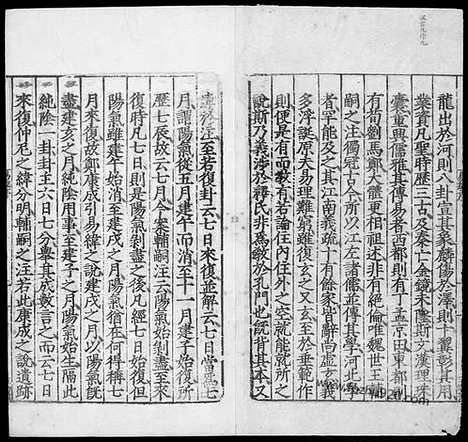 龍出於河則八卦宣其象麟傷於澤則十翼彰其用
業資凡聖時歷三古及秦亡金鏡未墜斯文漢理珠
囊重興儒雅其傳易者西都則有丁孟京田東都則
有荀劉馬鄭大體更相祖述非有絕倫唯魏世王輔
嗣之注獨冠古今所以江左諸儒並傳其學河北學
者罕能及之其江南義疏十有餘家皆辭尚虛玄義
多浮誕原夫易理難窮雖復玄之又玄至於垂範作
則便是有而教有若論住內住外之空就能就所之
說斯乃義涉於釋氏非為教於孔門也既背其本又
違於注至若復卦云七日來復並解云七日當為七
月謂陽氣從五月建午而消至十一月建子始升所
歷七辰故云七月今案輔嗣注云陽氣始剝盡至來
復時凡七日則是陽氣剝盡之後凡經七日始復但
陽氣雖建午始消至建戌之月陽氣猶在何得稱七
月來復故鄭康成引易緯之說建戌之月以陽氣既
盡建亥之月純陰用事至建子之月陽氣始生隔此
純陰一卦卦主六日七分舉其成數言之而云七日
來復仲尼之緯分明輔嗣之注若此康成之說遺跡